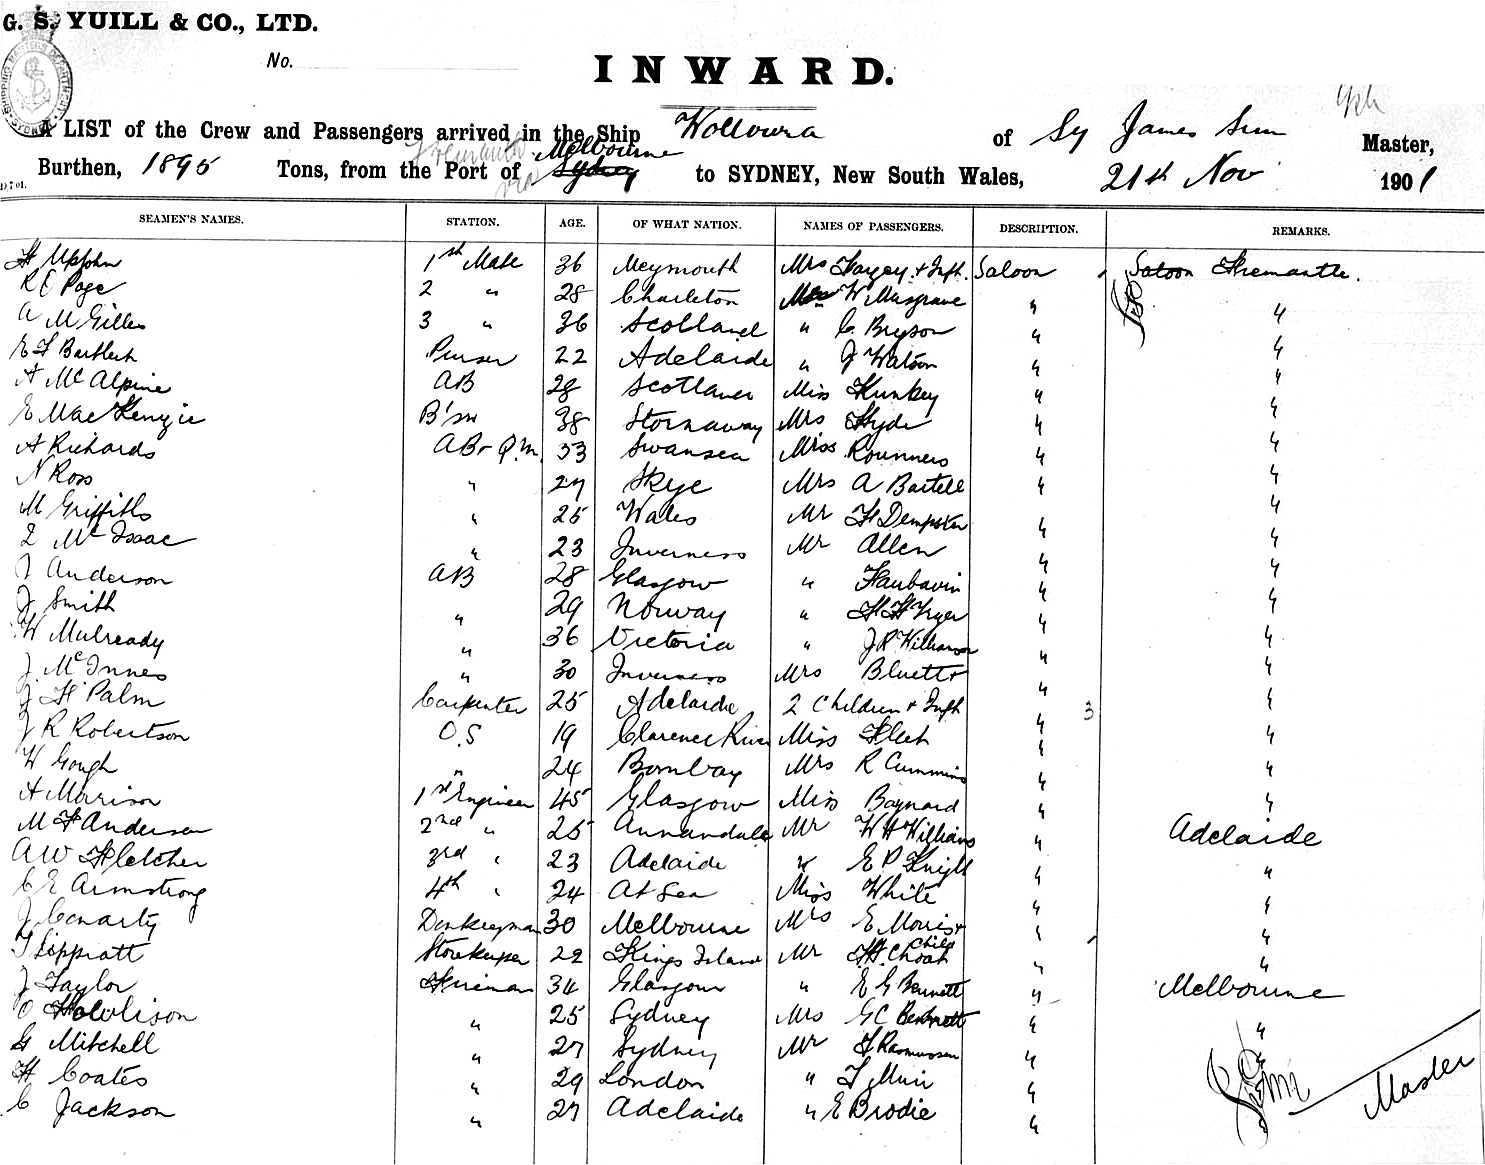 G. S. YUILL & CO., LTD.
No.
INWARD.
A LIST of the Crew and Passengers arrived in the Ship Wollowra of Sy James Sim Master,
Burthen, 1895 Tons, from the Port of Melbourne Sydney to SYDNEY, New South Wales, 21st Nov 1901
SEAMEN'S NAMES. STATION. AGE. OF WHAT NATION. NAMES OF PASSENGERS. DESCRIPTION. REMARKS.
H Upjohn 1st Mate 36 Weymouth Mrs & Infh. Saloon Saloon Fremantle.
R C Page 2 " 28 Charleton W Musgrave " "
A McGilles 3 " 36 Scotland " C Bryson " "
E F Bartlett Purser 22 Adelaide " J Watson " "
A McAlpine AB 28 Scotland Miss Hunkey " "
E MacKenzie B'sn 38 Stornaway Mrs Hyde " "
A Richards AB & Q.M. 33 Swansea Miss " "
N Ross " 27 Skye Mrs A Bartell " "
M Griffiths " 25 Wales Mr H Dempster " "
McIsaac " 23 Inverness Mr Allen " "
J Anderson AB 28 Glasgow " " "
J Smith " 29 Norway " H H Fryer " "
W Mulready " 36 Victoria " J R Williamson " "
J. McInnes " 30 Inverness Mrs Bluett & " "
J H Palm Carpenter 25 Adelaide 2 Children & Infh " 3 "
J R Robertson O.S 19 Clarence River Miss Fleet " "
W Gough " 24 Bombay Mrs R Cummins " "
A Morison 1st Engineer 45 Glasgow Miss Baynard " "
M F Anderson 2nd " 25 Annandale Mr W H Williams " Adelaide
A W Fletcher 3rd " 23 Adelaide " E P Knight " "
C E Armstrong 4th " 24 At Sea Miss White " "
J Conarty Donkeyman 30 Melbourne Mrs E Morris & Child " "
T Sippratt Storekeeper 22 Kings Island Mr H. Choat " "
J Taylor Fireman 34 Glasgow " E G Bennett " Melbourne
O " 25 Sydney Mrs G C Bennett " "
G Mitchell " 27 Sydney Mr F Rasmussen " "
H Coates " 29 London " T Muir "
C Jackson " 27 Adelaide " E Brodie "
Master